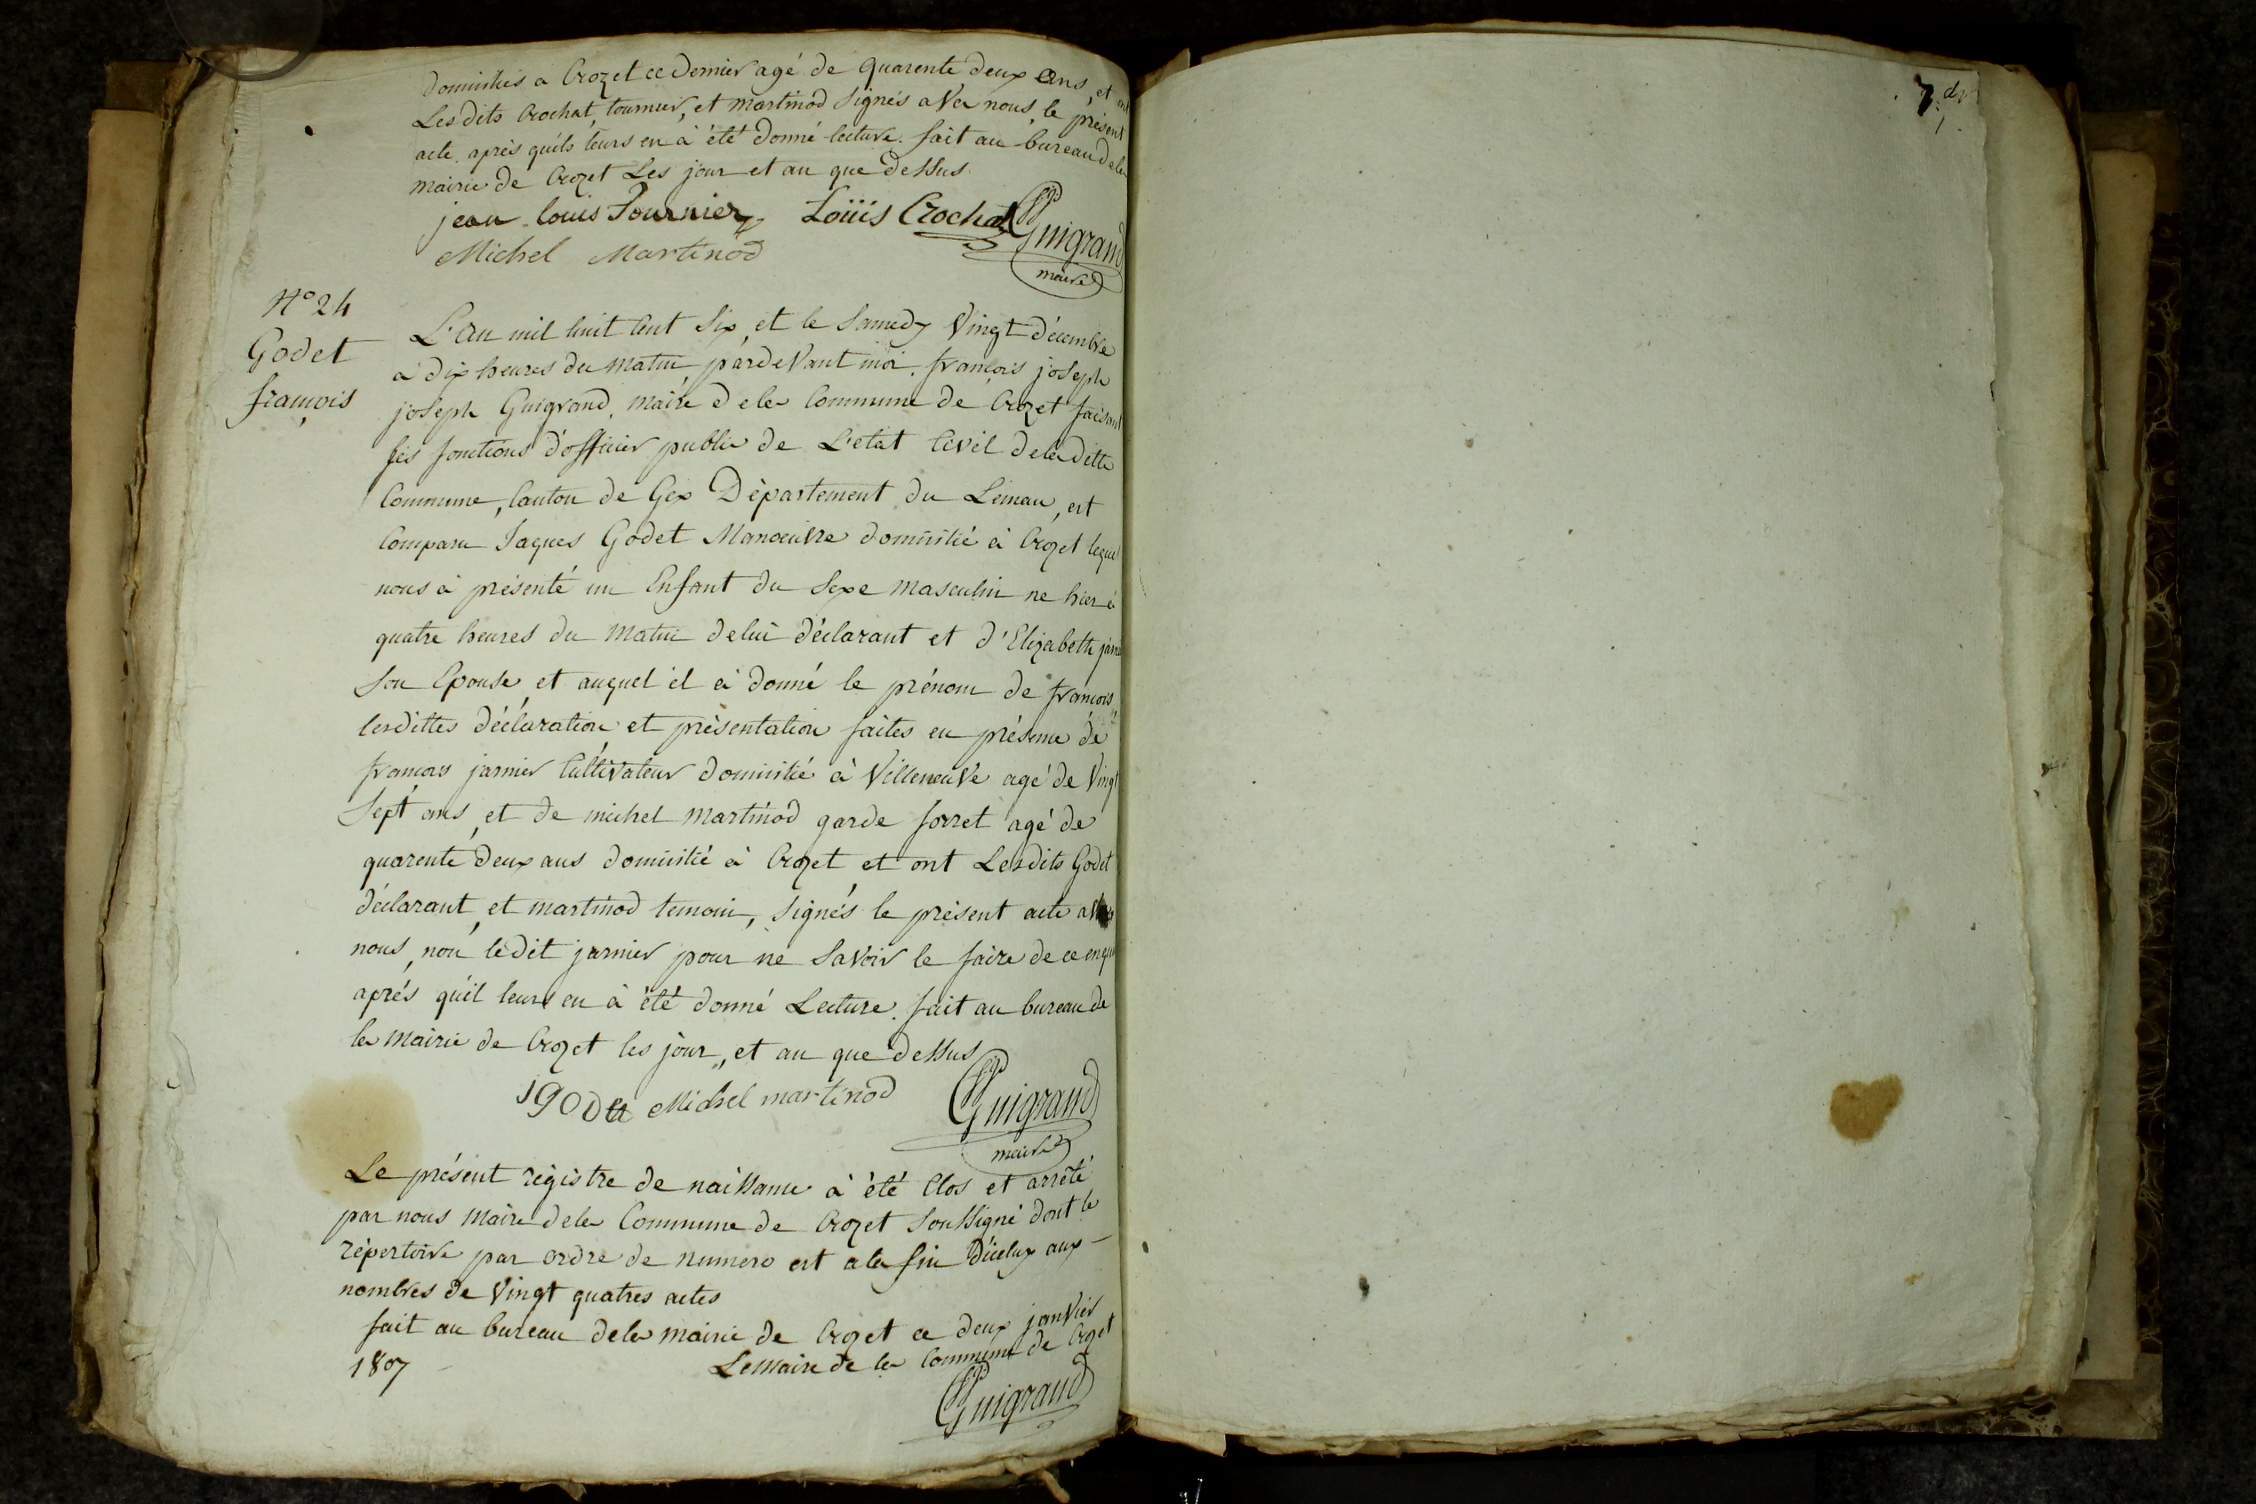 domiciliés a Crozet ce dernier agé de quarente deux ans, et ont
Lesdits Crochat, tournier, et martinod signés avec nous, le présent
acte après quils leurs en à été donné lecture. fait au bureau dela
mairie de Crozet Les jour et an que dessus.
jean louis Tournier Loüis Crochat Guigrand
Michel Martinod maire
N° 24
Godet
françois
L'an mil huit Cent Six, et le Samedy Vingt décembre
à dix heures du matin pardevant moi. françois joseph
joseph Guigrand, maire dela Commune de Crozet faisant
les fonctions d'officier public de L'etat Civil deladitte
Commune, Canton de Gex Département du Léman, est
Comparu Jaques Godet Manoeuvre domicilié à Crozet lequel
nous à présenté un Enfant du Sexe masculin ne hier à
quatre heures du matin delui déclarant et d'Elizabeth
Son Epouse, et auquel il à donné le prénom de françois,
lesdittes déclaration et présentation faites en présence de
françois jarnier Cultivateur domicilié à Villeneuve agé de Vingt
Sept ans, et de michel martinod garde forret agé de
quarente deux ans domicilié à Crozet et ont Lesdits Godet
déclarant, et martinod temoin, signés le présent acte avec
nous, non ledit jarnier pour ne Savoir le faire de ce enquis
aprés quil leurs en à été donné Lecture. fait au bureau de
la Mairie de Crozet les jour, et an que dessus
j godet Michel martinod Guigrand
maire
Le présent régistre de naissance à été Clos et arrêté
par nous Maire dela Commune de Crozet Soussigné dont le
répertoire par ordre de numero est ala fin d'icelux aux
nombres de Vingt quatres actes
fait au bureau dela mairie de Crozet ce deux janvier
1807 Lemaire de la Commune de Crozet
Guigrand
7